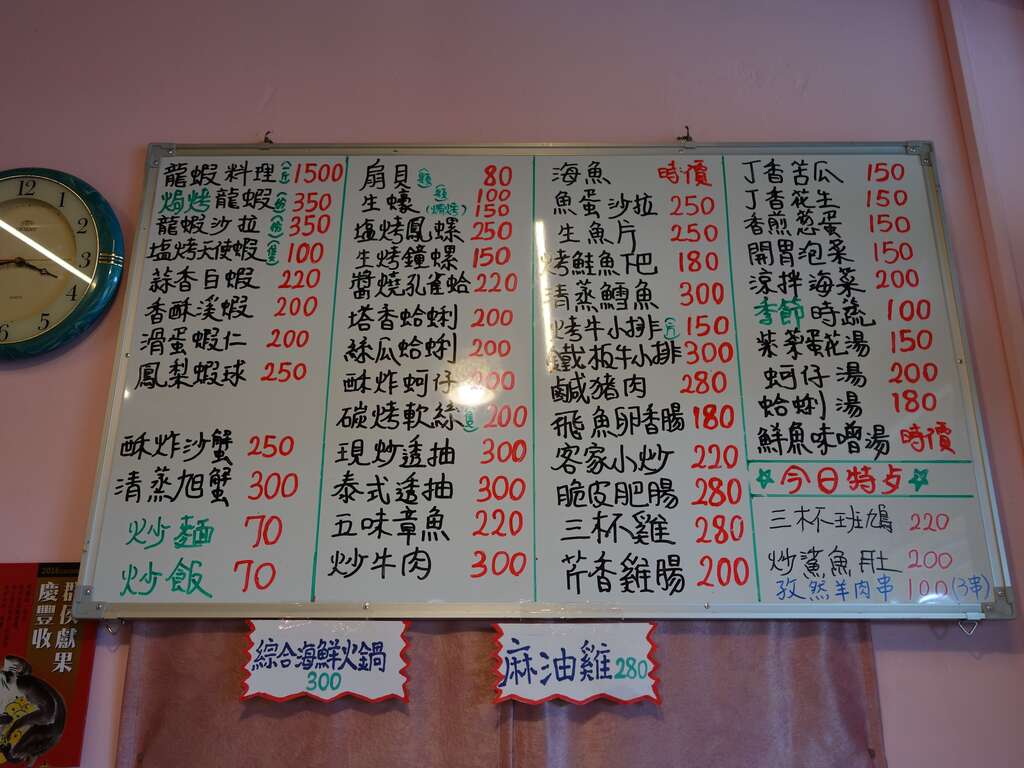 龍蝦料理 1500
焗烤龍蝦 350
龍蝦沙拉 350
塩烤天使蝦(隻) 100
蒜香白蝦 220
香酥溪蝦 200
滑蛋蝦仁 200
鳳梨蝦球 250
酥炸沙蟹 250
清蒸旭蟹 300
炒麵 70
炒飯 70
扇貝 80
生蠔 100
(焗烤) 150
塩烤鳳螺 250
生烤鐘螺 150
醬燒孔雀蛤 220
塔香蛤蜊 200
絲瓜蛤蜊 200
酥炸蚵仔 200
碳烤軟絲 200
現炒透抽 300
泰式透抽 300
五味章魚 220
炒牛肉 300
海魚 時價
魚蛋沙拉 250
生魚片 250
烤鮭魚下巴 180
清蒸鱈魚 300
烤牛小排(片) 150
鐵板牛小排 300
鹹豬肉 280
飛魚卵香腸 180
客家小炒 220
脆皮肥腸 280
三杯雞 280
芹香雞腸 200
丁香苦瓜 150
丁香花生 150
香煎蔥蛋 150
開胃泡菜 150
涼拌海菜 200
季節時蔬 100
紫菜蛋花湯 150
蚵仔湯 200
蛤蜊湯 180
鮮魚味噌湯 時價
今日特点
三杯班鳩 220
炒鯊魚肚 200
孜然羊肉串 100(3串)
綜合海鮮火鍋
300
麻油雞 280
12
1
2
3
4
5
6
2016
猴侯獻果
慶豐收